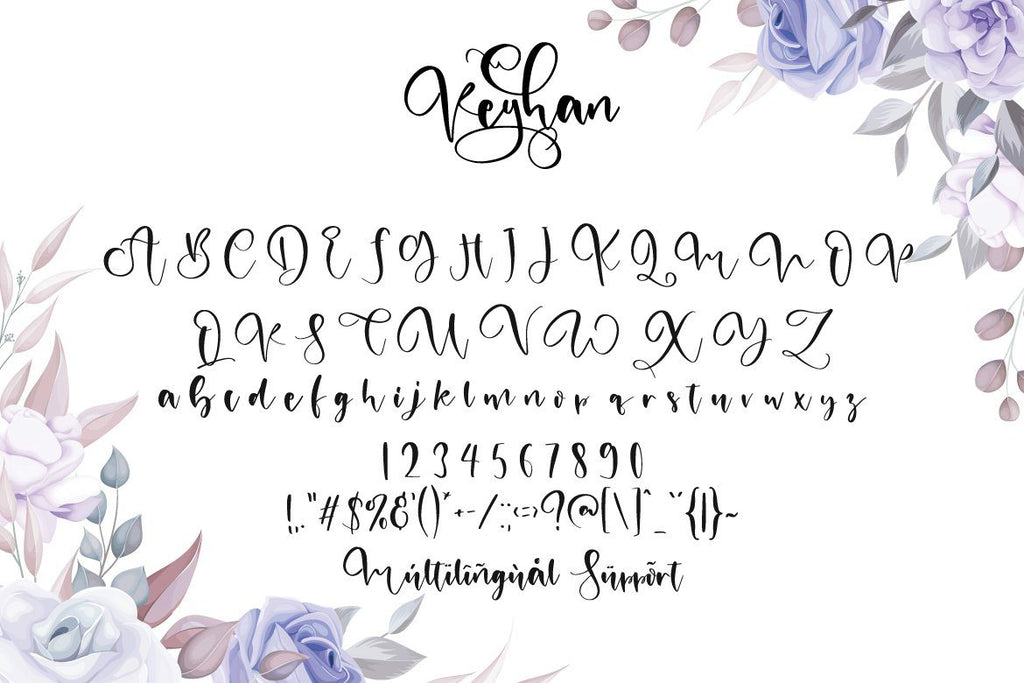 Keyhan
A B C D E f G H I J K L M N O P
Q R S T U V W X Y Z
a b c d e f g h i j k l m n o p q r s t u v w x y z
1 2 3 4 5 6 7 8 9 0
!,."#$%&'()*+-/:;<=>?@[\]^_`˝{|}~
Múltïlîñgùål Süppõrt